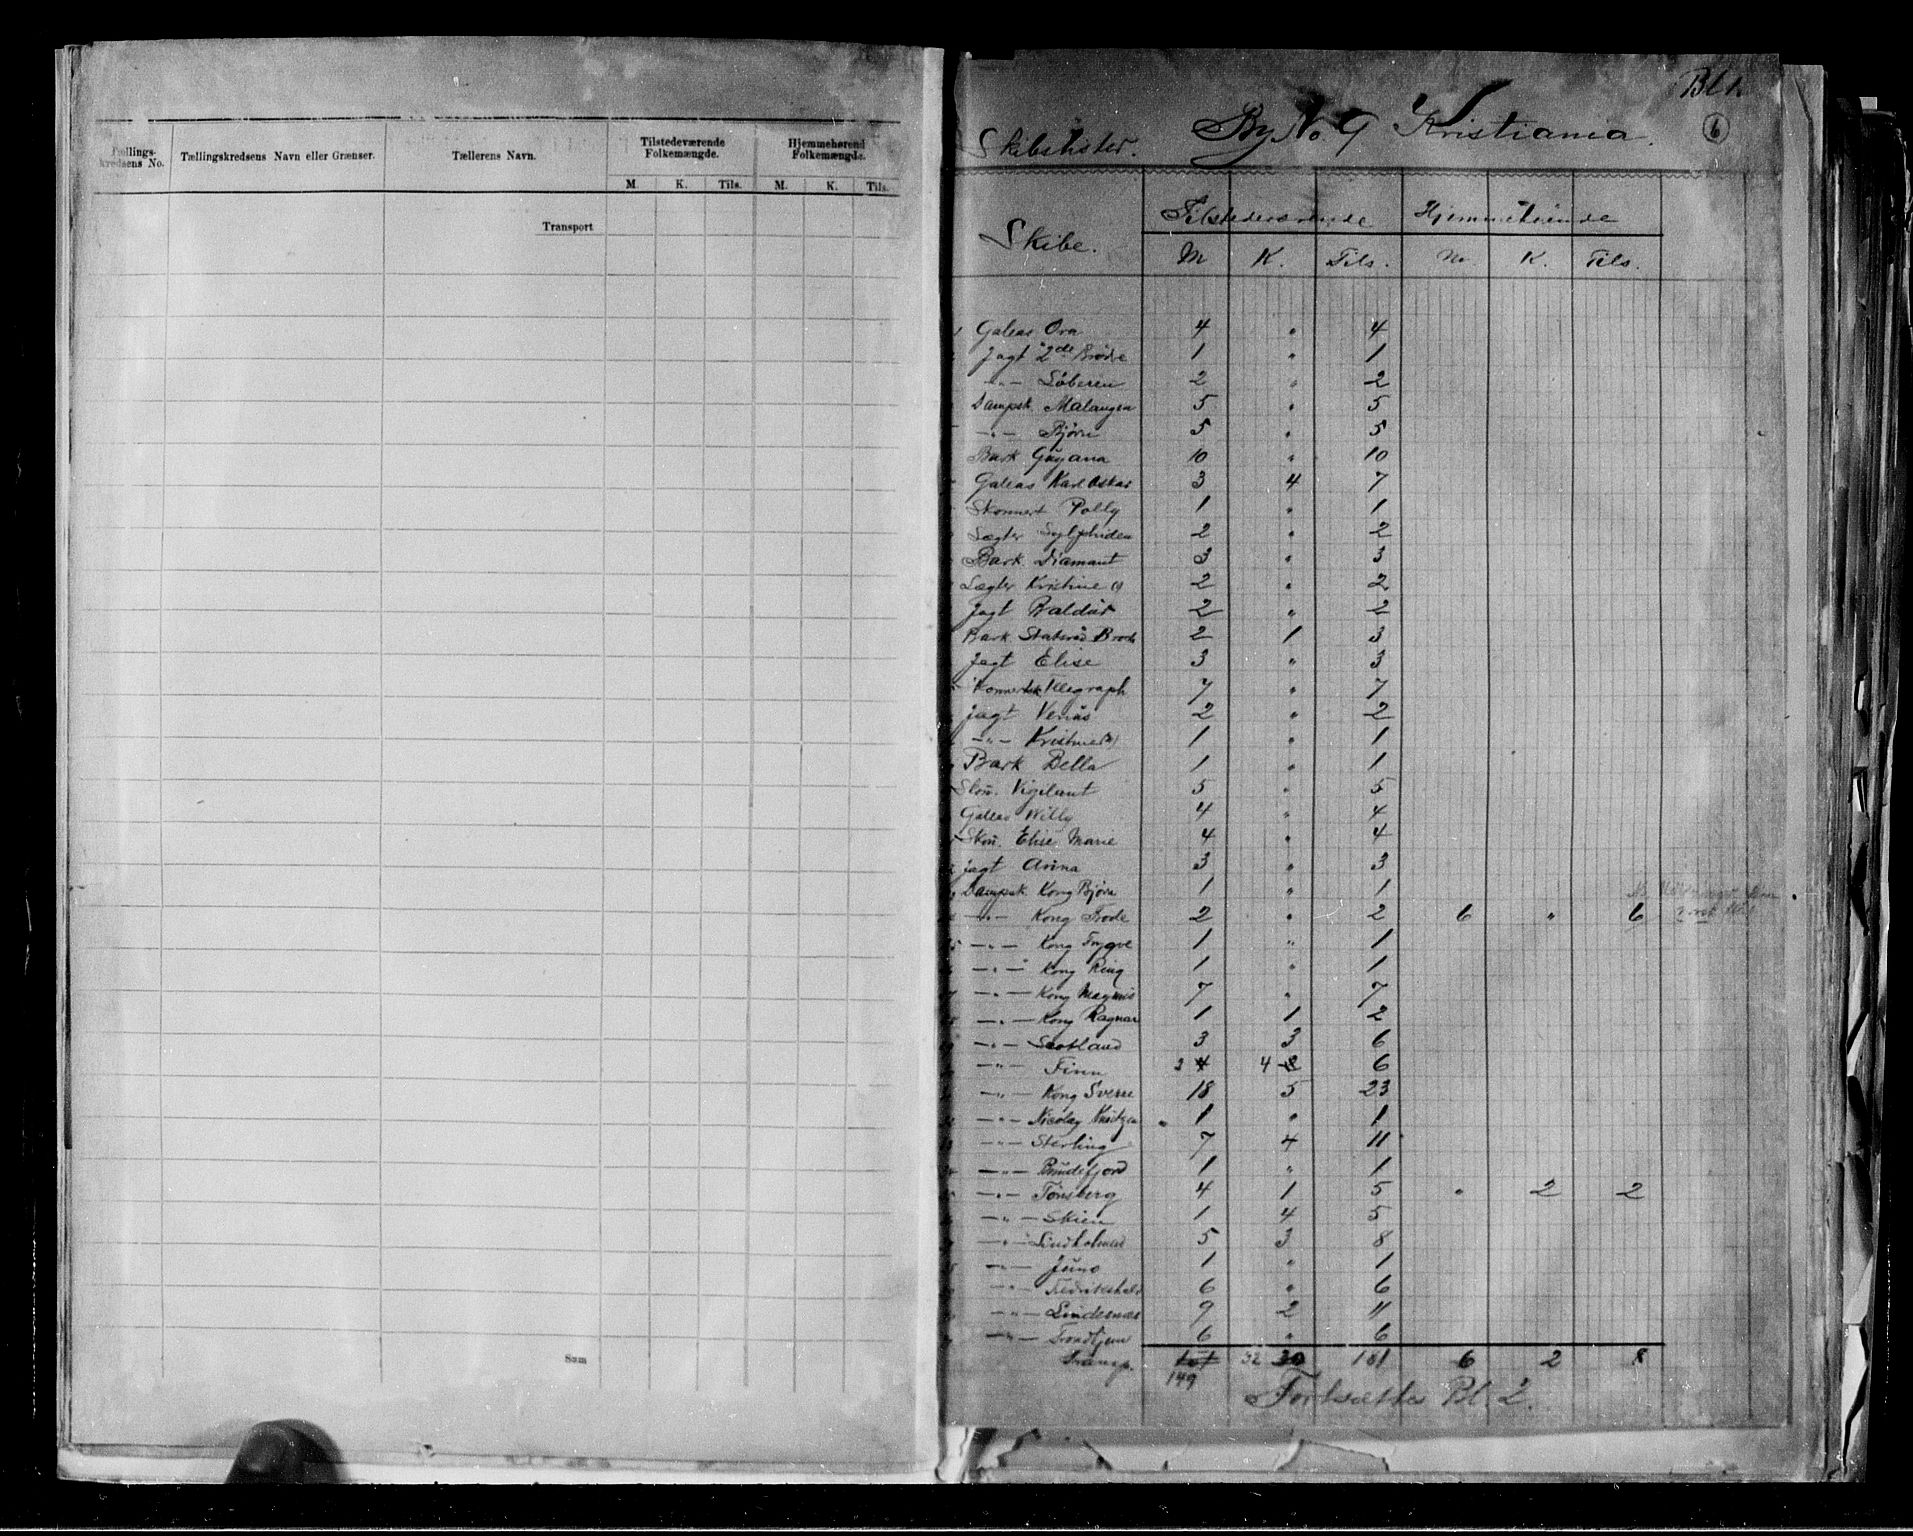 Tællings-
kredsens No.
Tællingskredsens Navn eller Grænser.
Tællerens Navn.
Tilstedeværende
Folkemængde.
Hjemmehørend
Folkemængde.
M. K. Tils. M. K. Tils.
Transport
Sum
Bl. 1.
6
Skibslister. By No. 9 Kristiania.
Skibe. Tilstedeværende Hjemmehørende
M K. Tils. M. K. Tils.
Galeas Ora 4 " 4
Jagt 2de Brødre 1 " 1
—"— Søberen 2 " 2
Dampsk. Malangen 5 " 5
—"— Bjørn 5 " 5
Bark Guyana 10 " 10
Galeas Karl Oskar 3 4 7
Skonnert Polly 1 " 1
Lægter Sylphiden 2 " 2
Bark. Diamant 3 " 3
Lægter Kristine (1) 2 " 2
Jagt Baldur 2 " 2
Bark. Statsråd Broch 2 1 3
Jagt Elise 3 " 3
Konnertsk Telegraph 7 " 7
Jagt Venås 2 " 2
—"— Kristine (2) 1 " 1
Bark Bella 1 " 1
Skon. Vigilant 5 " 5
Galeas Willy 4 " 4
Skon. Elise Marie 4 " 4
Jagt Anna 3 " 3
Dampsk. Kong Bjørn 1 " 1
—"— Kong Frode 2 " 2 6 " 6
25 —"— Kong Trygve 1 " 1
—"— Kong Ring 1 " 1
—"— Kong Magnus 7 " 7
—"— Kong Ragnar 1 1 2
—"— Scotland 3 3 6
—"— Finn 2 4 4 2 6
—"— Kong Sverre 18 5 23
—"— Nicolay Knudtzen " 1 " 1
—"— Sterling 7 4 11
—"— Bundefjord 1 " 1
—"— Tønsberg 4 1 5 " 2 2
—"— Skien 1 4 5
—"— Lindholmen 5 3 8
—"— Juno 1 " 1
—"— Fredrikshald 6 " 6
—"— Lindesnæs 9 2 11
—"— Trondhjem 6 " 6
Transp. 151 32 30 181 6 2 8
149
Fortsættes Bl. 2.